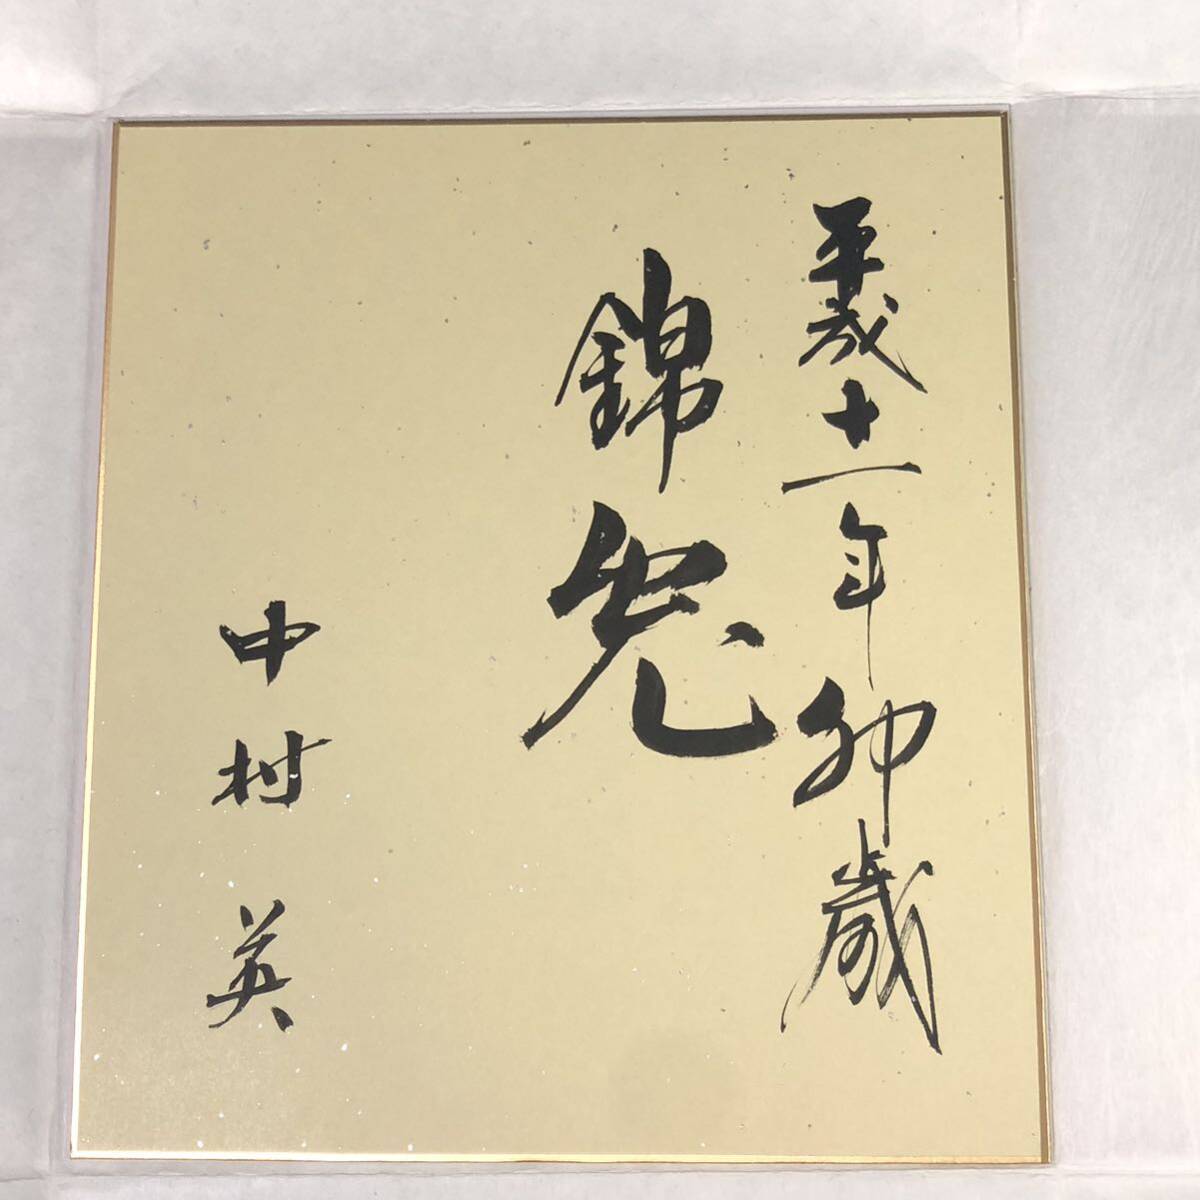 平成十一年卯歳
錦兎
中村英